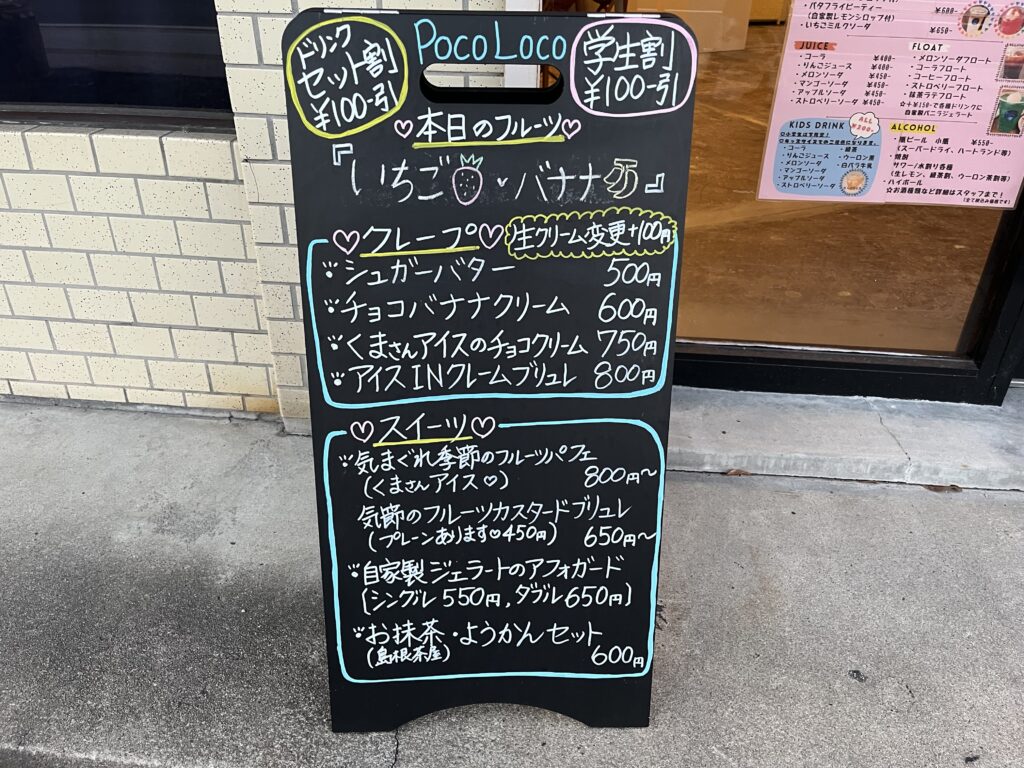 ドリンク
セット割
¥100-引
POCO LOCO
学生割
¥100-引
♡本日のフルーツ♡
『いちご・バナナ』
♡クレープ♡
生クリーム変更+100円
シュガーバター 500円
チョコバナナクリーム 600円
くまさんアイスのチョコクリーム 750円
アイスINクレームブリュレ 800円
♡スイーツ♡
気まぐれ季節のフルーツパフェ
(くまさんアイス♡) 800円~
気節のフルーツカスタードブリュレ
(プレーンあります♡450円) 650円~
自家製ジェラートのアフォガード
[シングル550円,ダブル650円]
お抹茶・ようかんセット
(島根茶屋) 600円
・バタフライピーティー ¥600-
(自家製レモンシロップ付)
・いちごミルクソーダ ¥650-
JUICE
・コーラ ¥400-
・りんごジュース ¥400-
・メロンソーダ ¥450-
・マンゴーソーダ ¥450-
・アップルソーダ ¥450-
・ストロベリーソーダ ¥450-
FLOAT
・メロンソーダフロート
・コーラフロート
・コーヒーフロート
・ストロベリーフロート
・抹茶ラテフロート
☆+¥150-で各種ドリンクに
自家製バニラジェラート
KIDS DRINK
ALL
¥200-
・コーラ
・りんごジュース
・メロンソーダ
・マンゴーソーダ
・アップルソーダ
・ストロベリーソーダ
・緑茶
・ウーロン茶
・白バラ牛乳
ALCOHOL
・瓶ビール 小瓶 ¥550-
(スーパードライ、ハートランド等)
・焼酎
サワー/水割り各種
(生レモン、緑茶割、ウーロン茶割等)
・ハイボール
☆お酒種類など詳細はスタッフまで!
(全て税込み価格です)